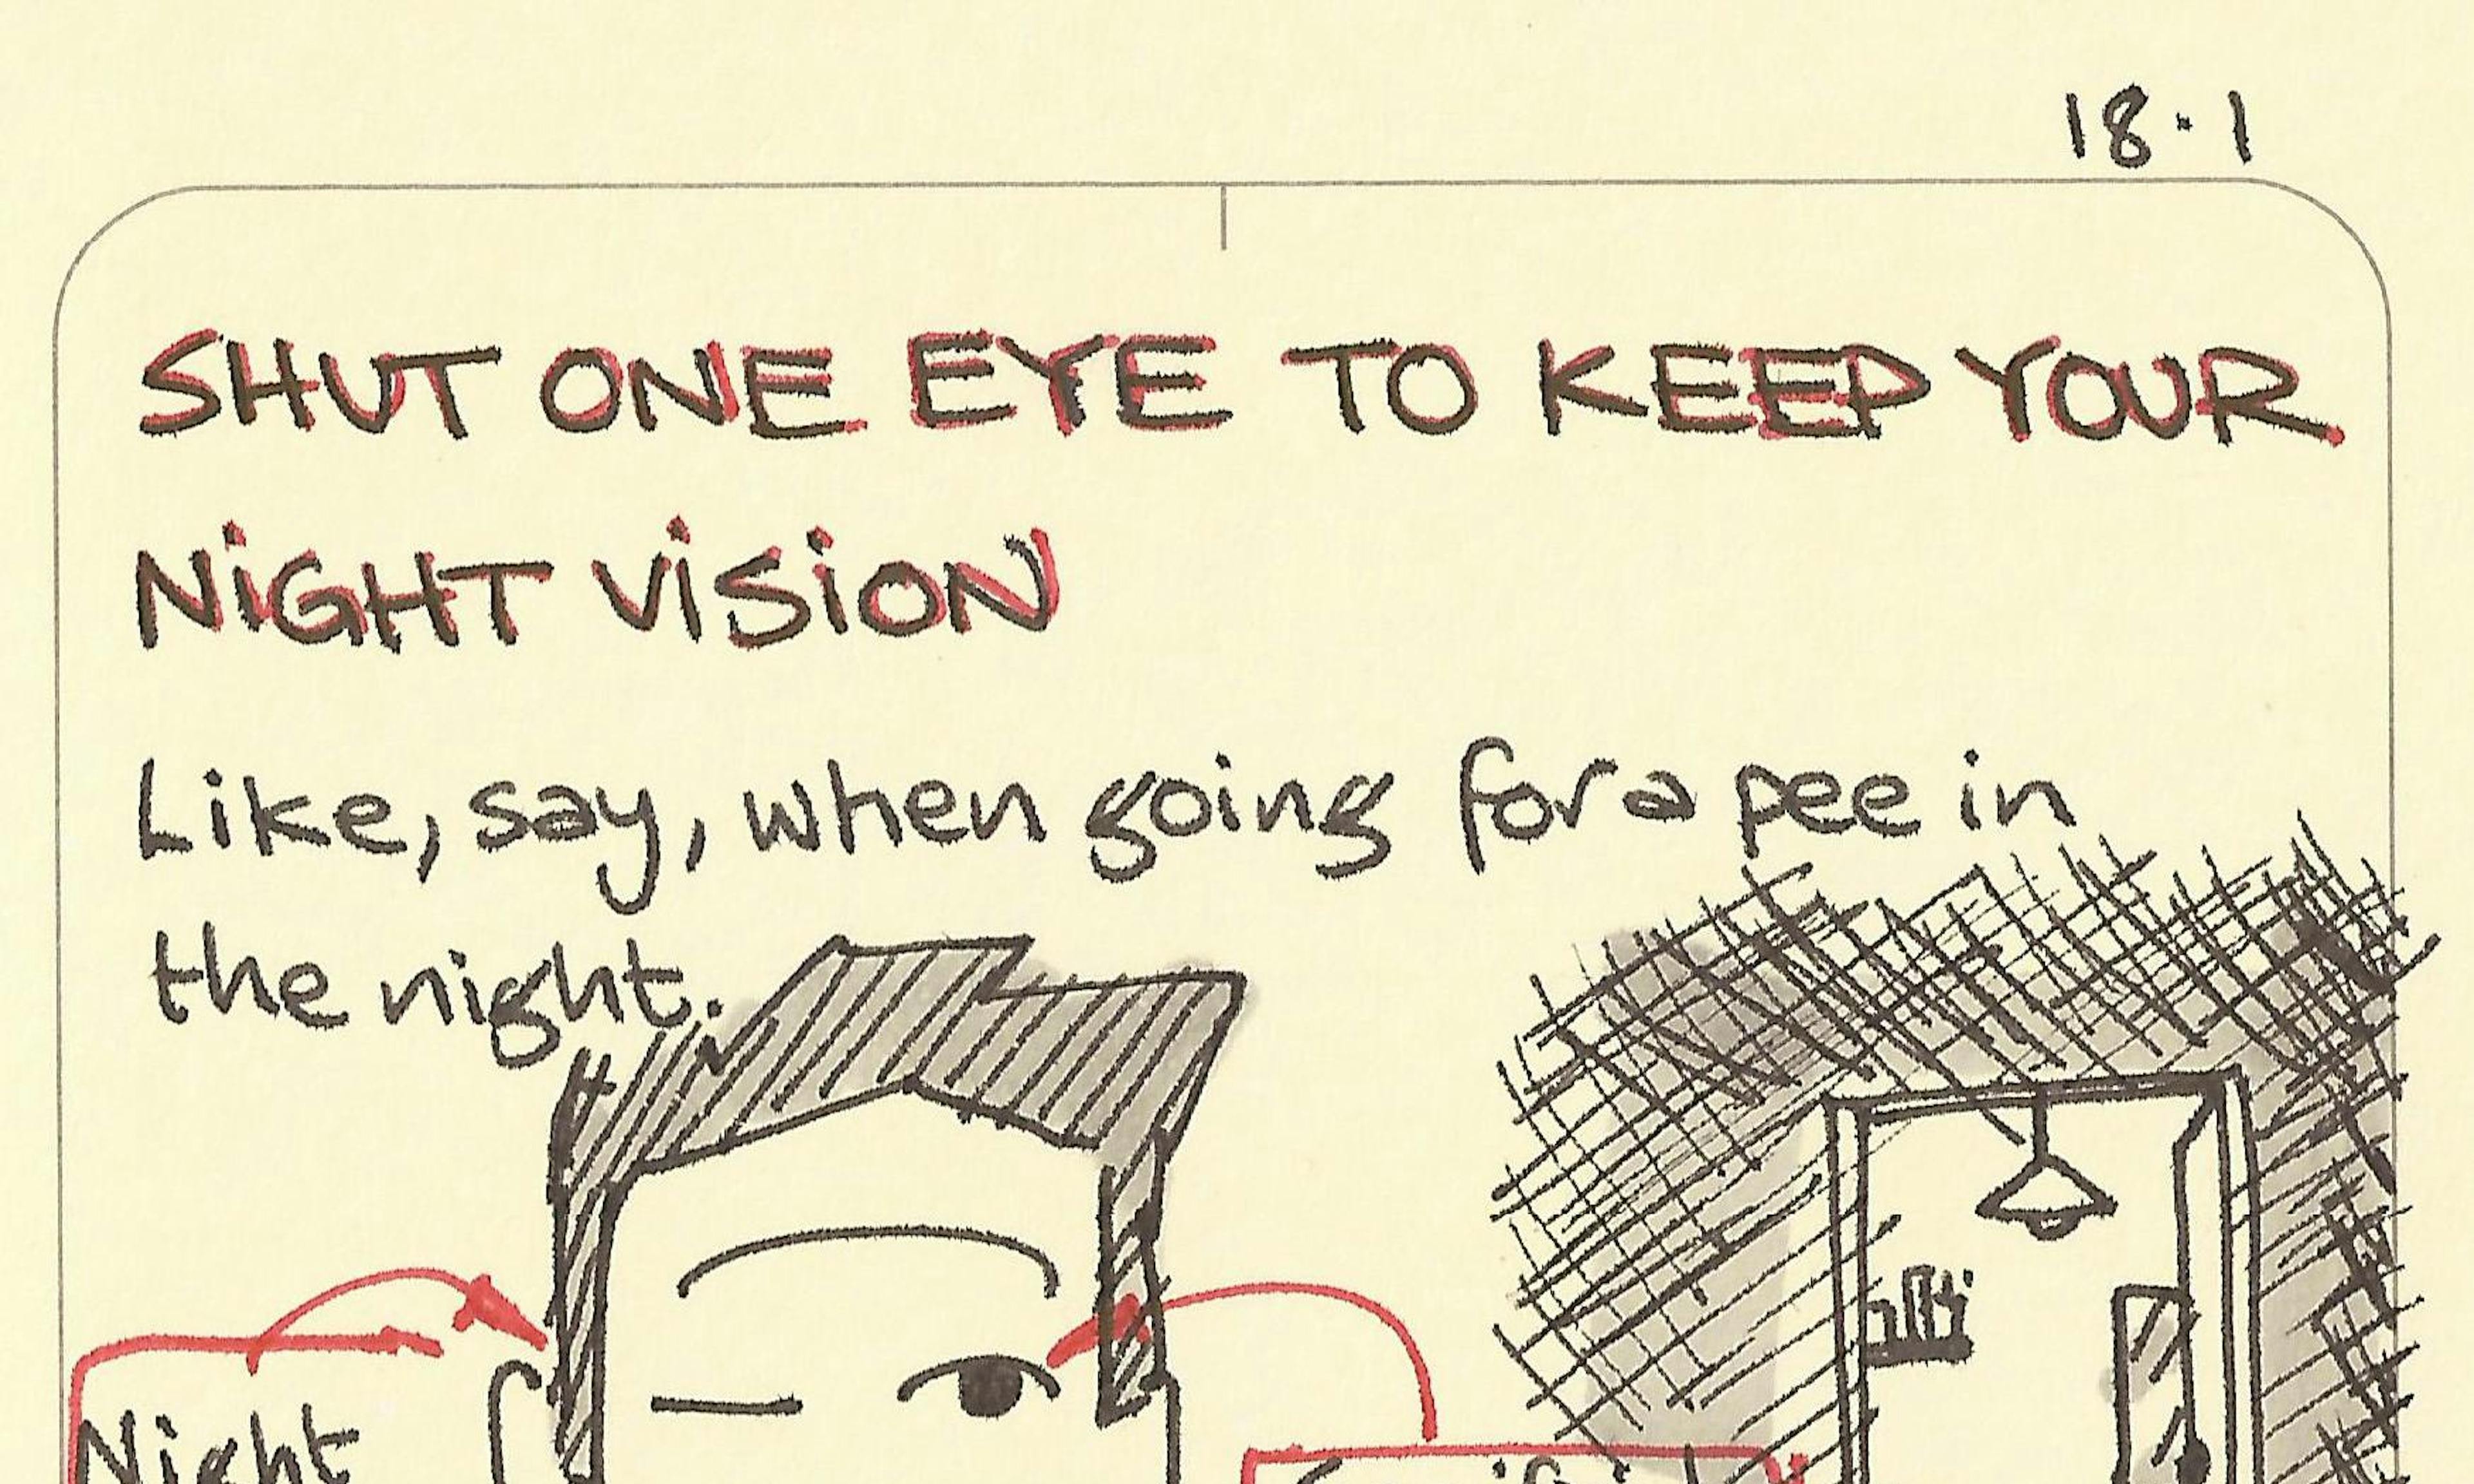 18·1
SHUT ONE EYE TO KEEP YOUR
NiGHT ViSiON
Like, say, when going for a pee in
the night.
Night